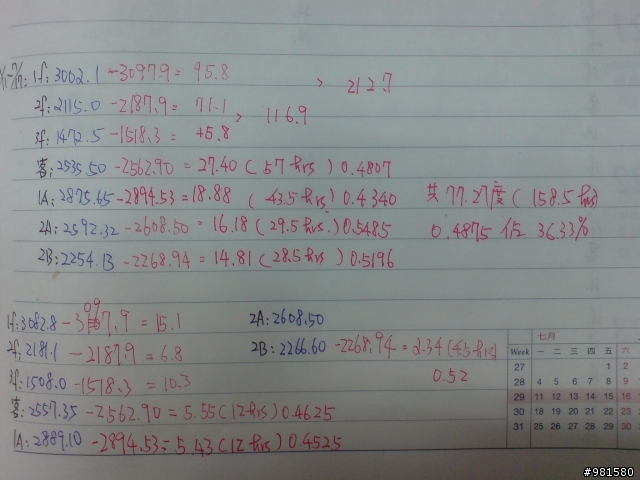 1f: 3002.1 - 3097.9 = 95.8 > 212.7
2f: 2115.0 - 2187.9 = 71.1 > 116.9
3f: 1472.5 - 1518.3 = 45.8
客: 2535.50 - 2562.90 = 27.40 (57 hrs) 0.4807
1A: 2875.65 - 2894.53 = 18.88 (43.5 hrs) 0.4340 共 77.27度 (158.5 hrs)
2A: 2592.32 - 2608.50 = 16.18 (29.5 hrs.) 0.5485 0.4875 佔 36.33%
2B: 2254.13 - 2268.94 = 14.81 (28.5 hrs) 0.5196
1f: 3082.8 - 3097.9 = 15.1 2A: 2608.50
2f: 2181.1 - 2187.9 = 6.8 2B: 2266.60 - 2268.94 = 2.34 (4.5 hrs)
3f: 1508.0 - 1518.3 = 10.3 0.52
客: 2557.35 - 2562.90 = 5.55 (12 hrs) 0.4625
1A: 2889.10 - 2894.53 = 5.43 (12 hrs) 0.4525
七月
Week 一 二 三 四 五 六
27 1 2
28 4 5 6 7 8 9
29 11 12 13 14 15 16
30 18 19 20 21 22 23
31 25 26 27 28 29 30
#981580